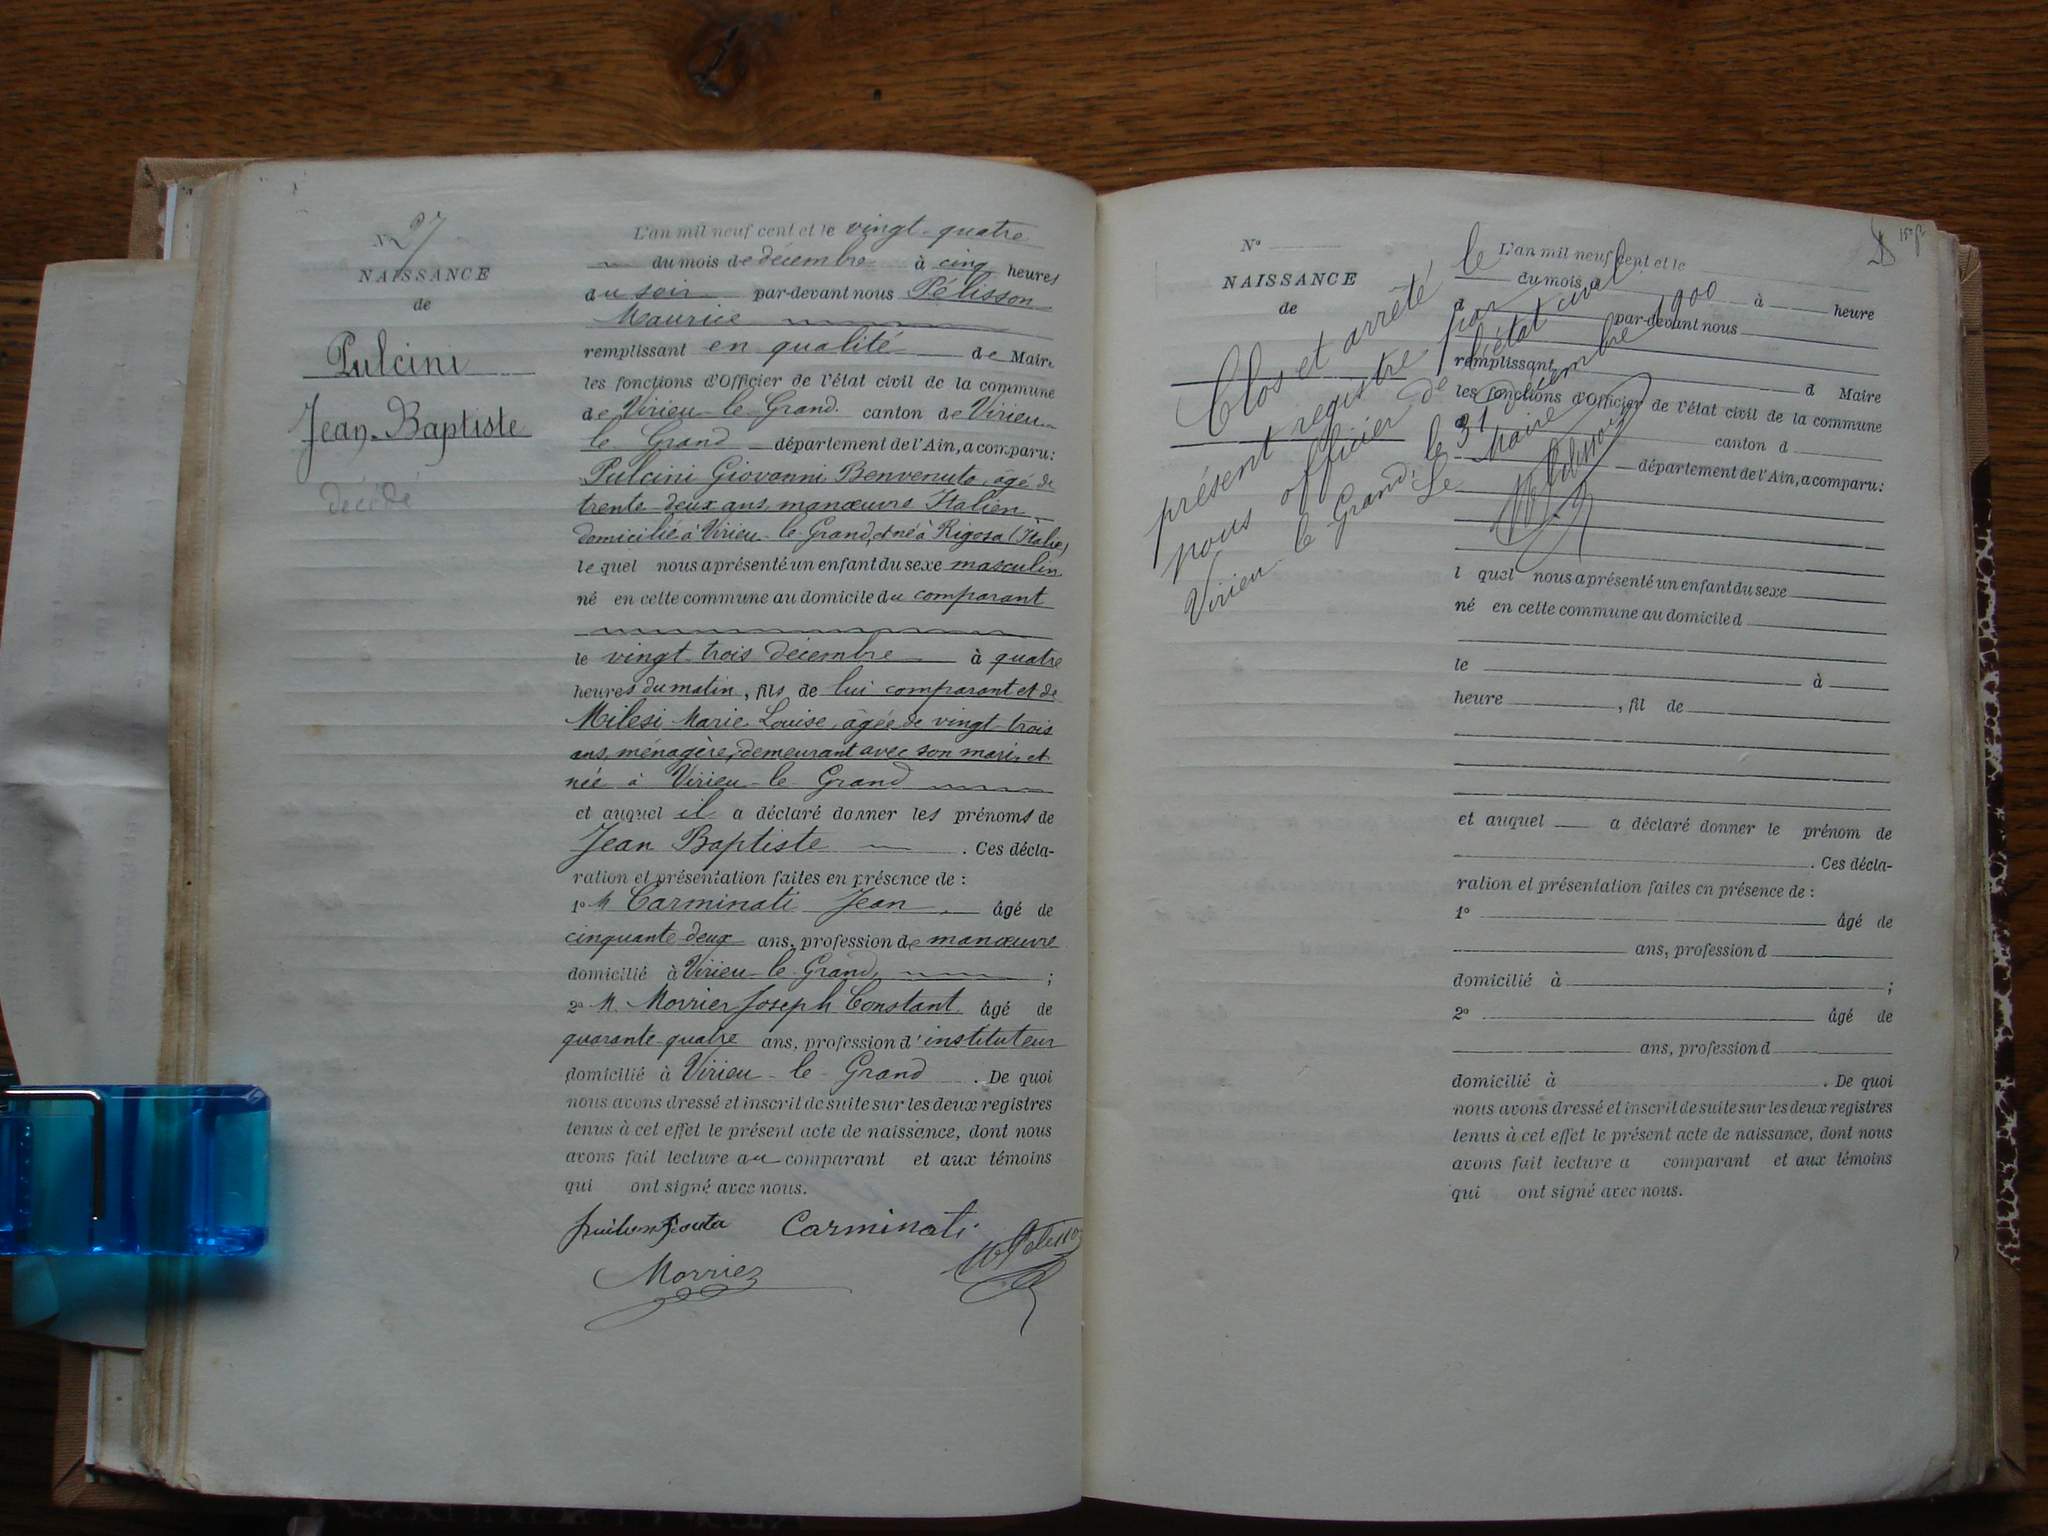 N° 27
NAISSANCE
de
Pulcini
Jean-Baptiste
décédé
L'an mil neuf cent et le vingt-quatre
du mois de décembre à cinq heures
du soir par-devant nous Pélisson
Maurice
remplissant en qualité de Maire
les fonctions d'Officier de l'état civil de la commune
de Virieu-le-Grand. canton de Virieu-
le Grand département de l'Ain, a comparu:
Pulcini Giovanni Benvenuto, âgé de
trente-deux ans, manœuvre Italien
domicilié à Virieu-le-Grand, et né à Rigosa (Italie)
le quel nous a présenté un enfant du sexe masculin
né en cette commune au domicile du comparant
le vingt-trois décembre à quatre
heures du matin, fils de lui comparant et de
Milesi Marie Louise, âgée de vingt-trois
ans, ménagère, demeurant avec son mari, et
née à Virieu-le-Grand
et auquel il a déclaré donner les prénoms de
Jean Baptiste . Ces décla-
ration et présentation faites en présence de :
1° M Carminati Jean, âgé de
cinquante-deux ans, profession de manœuvre
domicilié à Virieu-le-Grand, ;
2° M. Morrier Joseph Constant âgé de
quarante-quatre ans, profession d'instituteur
domicilié à Virieu-le-Grand . De quoi
nous avons dressé et inscrit de suite sur les deux registres
tenus à cet effet le présent acte de naissance, dont nous
avons fait lecture au comparant et aux témoins
qui ont signé avec nous.
Carminati
Morrier
M Pelisson
15e f
N°
NAISSANCE
de
Clos et arrêté le
présent registre par
nous officier de l'état civil
Virieu-le Grand, le 31 décembre 1900
Le Maire
M Pelisson
L'an mil neuf cent et le
du mois d à heure
d par-devant nous
remplissant d Maire
les fonctions d'Officier de l'état civil de la commune
d canton d
département de l'Ain, a comparu:
l quel nous a présenté un enfant du sexe
né en cette commune au domicile d
le à
heure , fil de
et auquel a déclaré donner le prénom de
. Ces décla-
ration et présentation faites en présence de :
1° âgé de
ans, profession d
domicilié à ;
2° âgé de
ans, profession d
domicilié à . De quoi
nous avons dressé et inscrit de suite sur les deux registres
tenus à cet effet le présent acte de naissance, dont nous
avons fait lecture a comparant et aux témoins
qui ont signé avec nous.